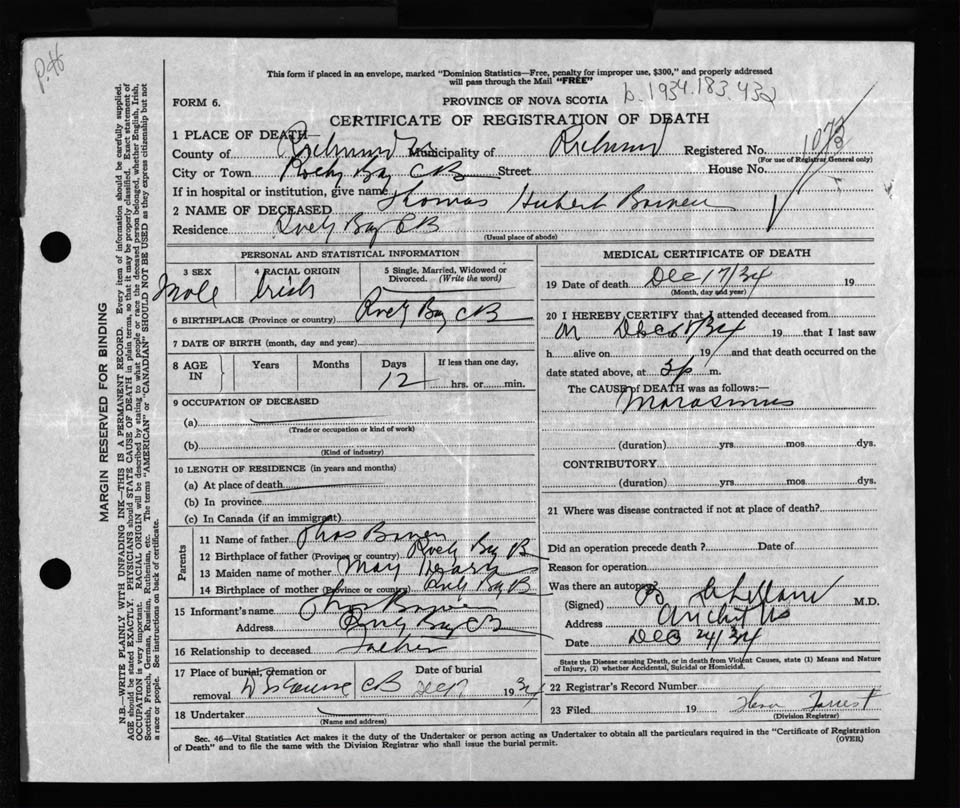 P.H
This form if placed in an envelope, marked "Dominion Statistics—Free, penalty for improper use, $300," and properly addressed
will pass through the Mail "FREE"
b.1934.183.432
FORM 6.
PROVINCE OF NOVA SCOTIA
CERTIFICATE OF REGISTRATION OF DEATH
1 PLACE OF DEATH—
County of Richmond Municipality of Richmond Registered No.
(For use of Registrar General only)
City or Town Rocky Bay CB Street House No.
If in hospital or institution, give name
2 NAME OF DECEASED Thomas Hubert
Residence Rocky Bay CB
(Usual place of abode)
PERSONAL AND STATISTICAL INFORMATION
3 SEX Male
4 RACIAL ORIGIN Irish
5 Single, Married, Widowed or Divorced. (Write the word)
6 BIRTHPLACE (Province or country) Rocky Bay CB
7 DATE OF BIRTH (month, day and year)
8 AGE IN Years Months Days 12 If less than one day, hrs. or min.
9 OCCUPATION OF DECEASED
(a)
(Trade or occupation or kind of work)
(b)
(Kind of industry)
10 LENGTH OF RESIDENCE (in years and months)
(a) At place of death
(b) In province
(c) In Canada (if an immigrant)
Parents
11 Name of father Thos
12 Birthplace of father (Province or country) Rocky Bay CB
13 Maiden name of mother May
14 Birthplace of mother (Province or country) Rocky Bay CB
15 Informant's name Thos
Address Rocky Bay CB
16 Relationship to deceased Father
17 Place of burial, cremation or removal D'Escousse CB Date of burial Dec 1934
18 Undertaker
(Name and address)
MEDICAL CERTIFICATE OF DEATH
19 Date of death Dec 17/34 19
(Month, day and year)
20 I HEREBY CERTIFY that I attended deceased from
on Dec 34 19 that I last saw
h alive on 19 and that death occurred on the
date stated above, at 3p m.
The CAUSE of DEATH was as follows:—
Marasmus
(duration) yrs. mos. dys.
CONTRIBUTORY
(duration) yrs. mos. dys.
21 Where was disease contracted if not at place of death?
Did an operation precede death? Date of
Reason for operation
Was there an autopsy
(Signed) M.D.
Address Arichat NS
Date Dec 24/34
State the Disease causing Death, or in death from Violent Causes, state (1) Means and Nature
of Injury, (2) whether Accidental, Suicidal or Homicidal.
22 Registrar's Record Number
23 Filed 19
(Division Registrar)
Sec. 46—Vital Statistics Act makes it the duty of the Undertaker or person acting as Undertaker to obtain all the particulars required in the "Certificate of Registration
of Death" and to file the same with the Division Registrar who shall issue the burial permit. (OVER)
MARGIN RESERVED FOR BINDING
N.B.—WRITE PLAINLY WITH UNFADING INK—THIS IS A PERMANENT RECORD. Every item of information should be carefully supplied.
AGE should be stated EXACTLY. PHYSICIANS should STATE CAUSE OF DEATH in plain terms, so that it may be properly classified. Exact statement of
OCCUPATION is very important. RACIAL ORIGIN will be described by stating to what people or race the deceased person belonged, whether English, Irish,
Scottish, French, German, Russian, Ruthenian, etc. The terms "AMERICAN" or "CANADIAN" SHOULD NOT BE USED as they express citizenship but not
a race or people. See instructions on back of certificate.